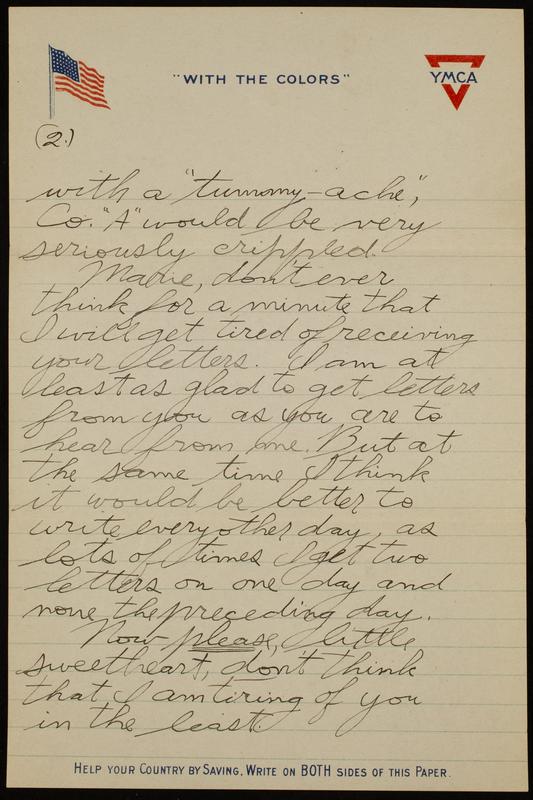 "WITH THE COLORS"
YMCA
(2.)
with a "tummy-ache",
Co. "A" would be very
seriously crippled.
Marie, don't ever
think for a minute that
I will get tired of receiving
your letters. I am at
least as glad to get letters
from you as you are to
hear from me. But at
the same time I think
it would be better to
write every other day, as
lots of times I get two
letters on one day and
none the preceding day.
Now please, little
sweetheart, don't think
that I am tiring of you
in the least.
HELP YOUR COUNTRY BY SAVING. WRITE ON BOTH SIDES OF THIS PAPER.